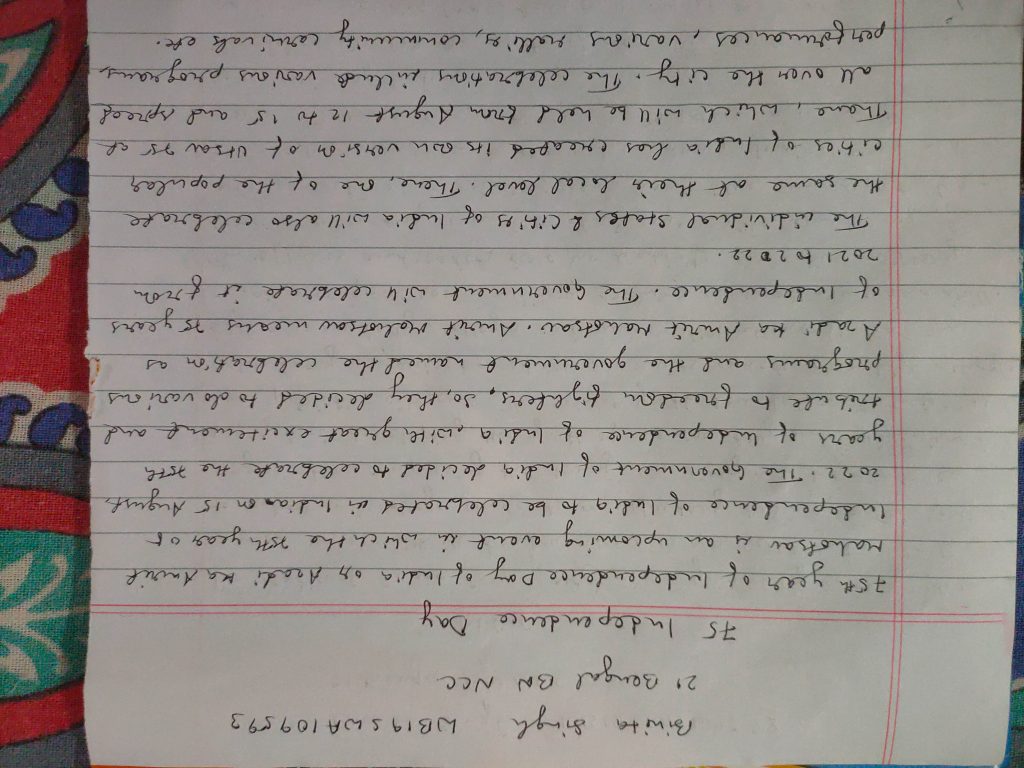 Binita Singh WB19SWA109593
21 Bengal BN NCC
75 Independence Day
75th year of Independence Day of India or Azadi Ka Amrit
Mahotsav is an upcoming event in which the 75th year of
Independence of India to be celebrated in India on 15 August,
2022. The Government of India decided to celebrate the 75th
years of Independence of India, with great excitement and
tribute to freedom fighters, so, they decided to do various
programs and the government named the celebration as
Azadi ka Amrit Mahotsav. Amrit Mahotsav means 75 years
of Independence. The Government will celebrate it from
2021 to 2022.
The individual states & Cities of India will also celebrate
the same at their local level. Thane, one of the popular
cities of India has created its own version of Utsav 75 at
Thane, which will be held from August 12 to 15 and spread
all over the city. The celebrations include various programs,
performances, various rallies, community carnivals etc.